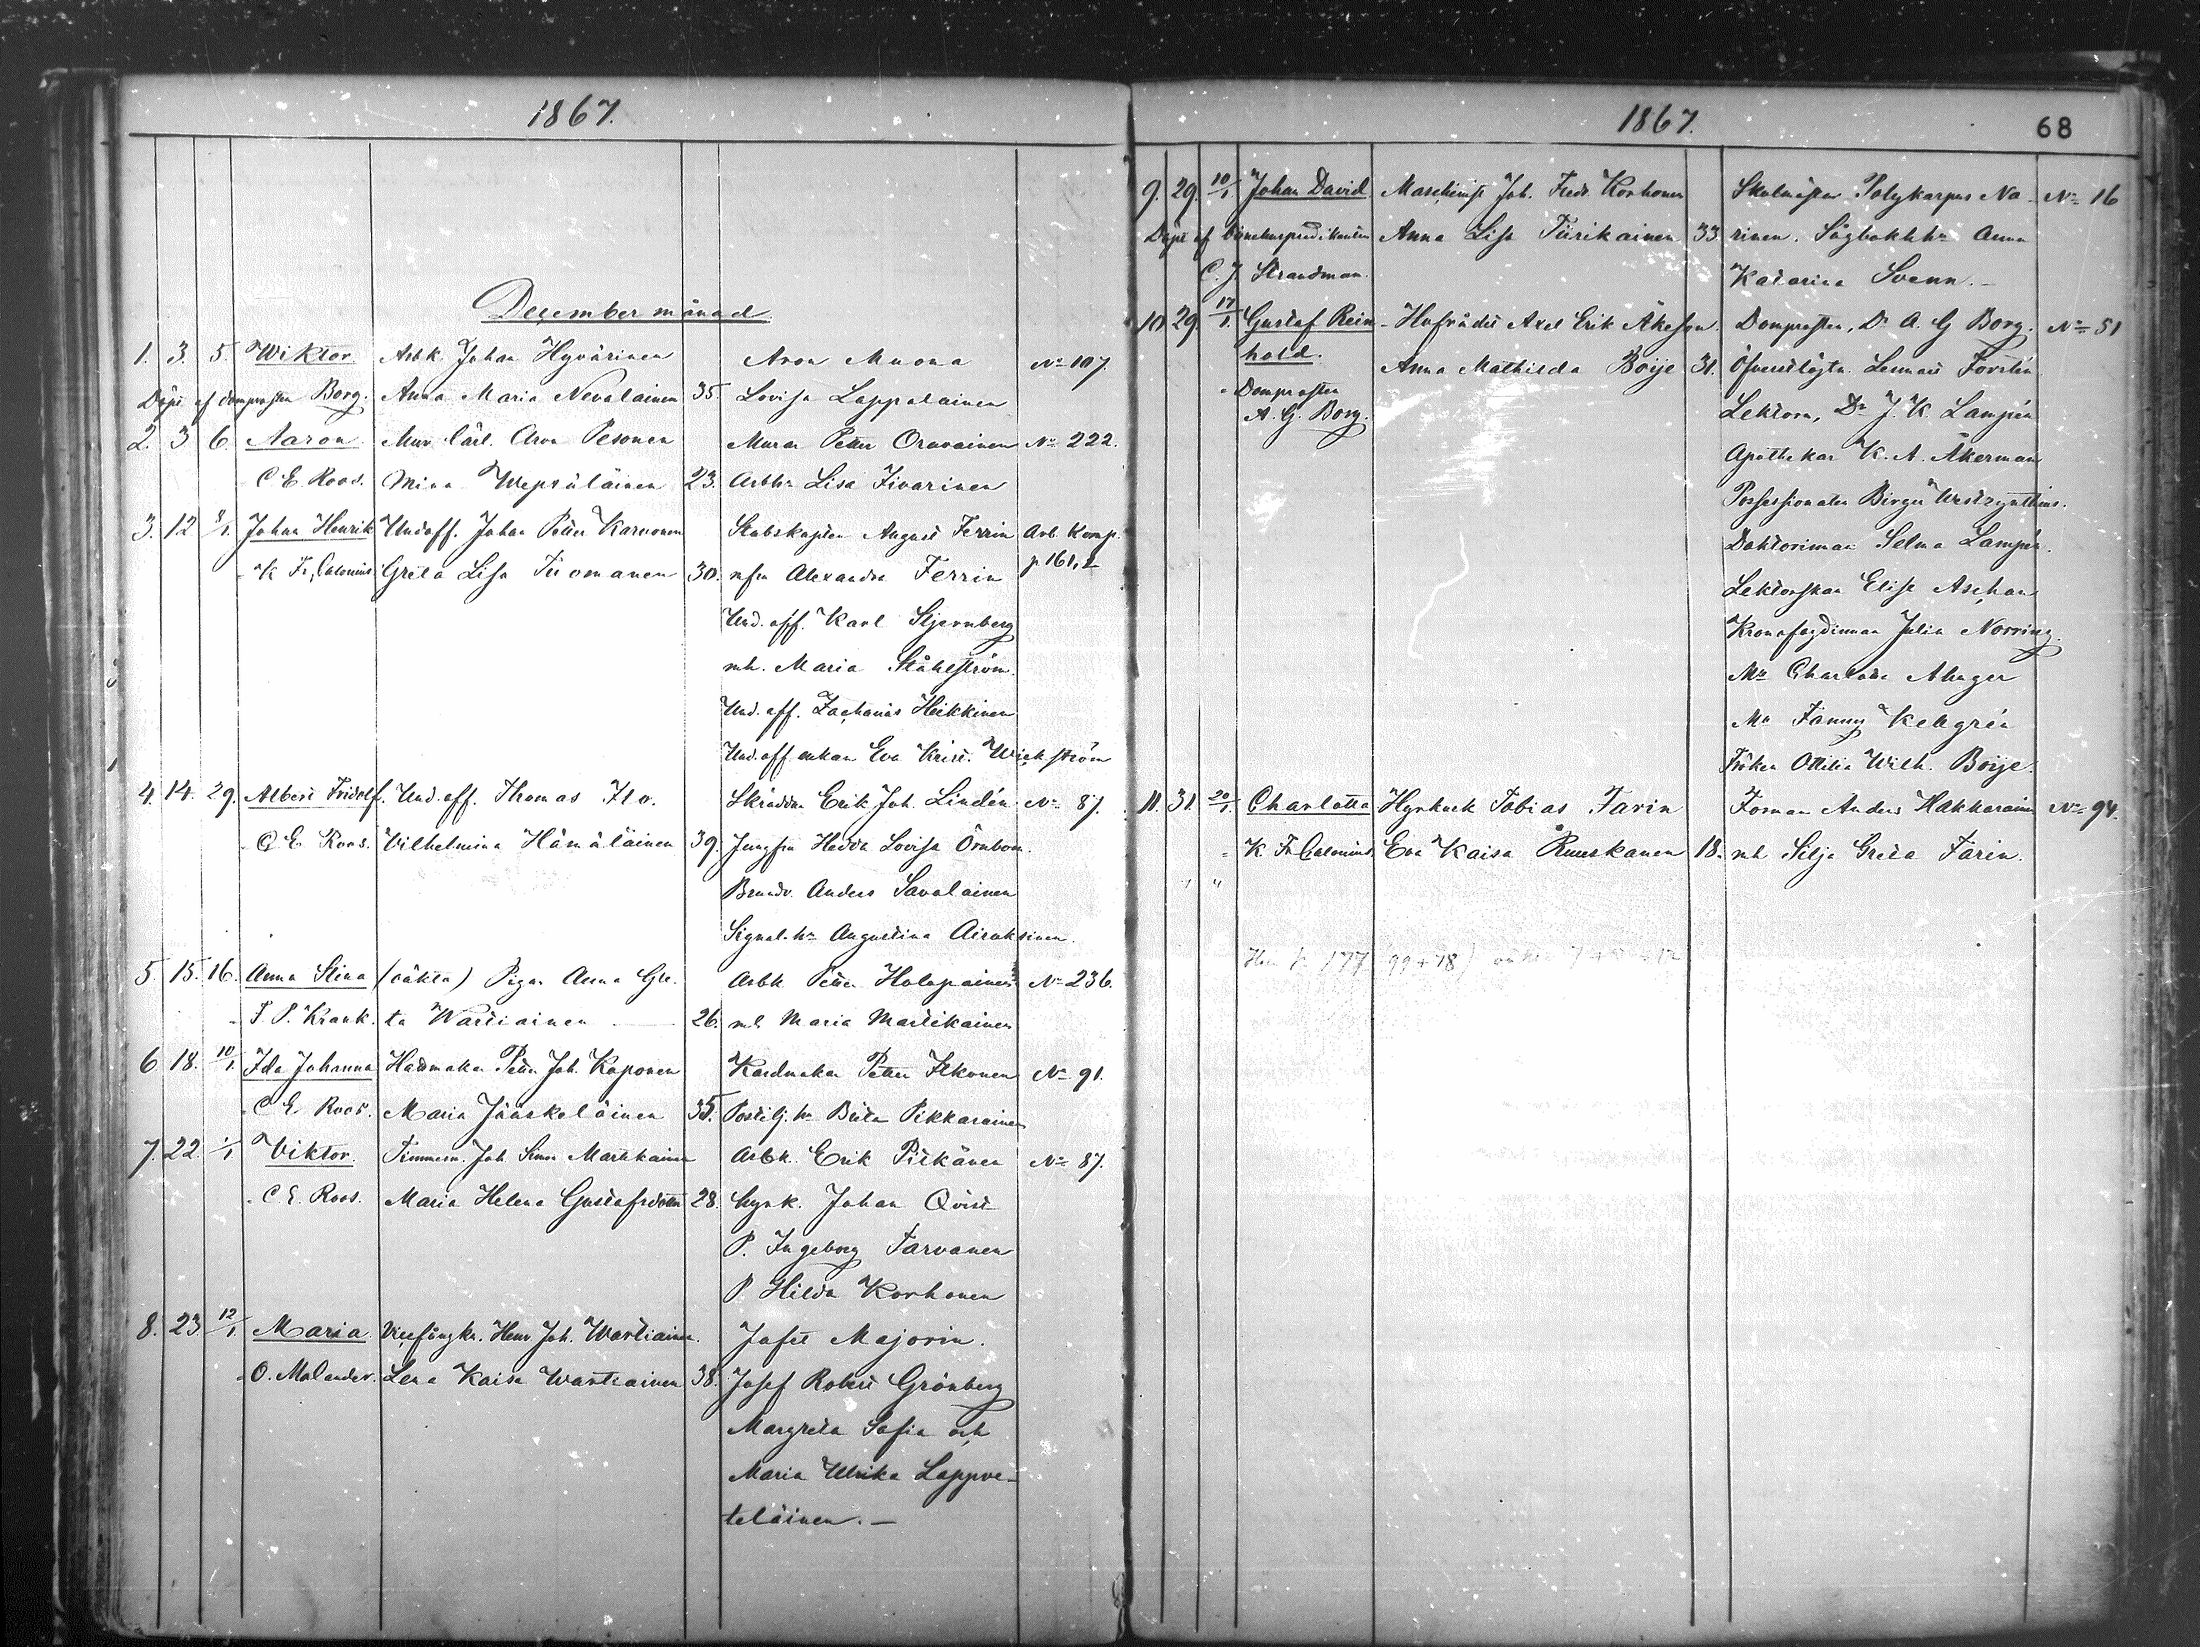 1867.
December månad
1. 3. 5. Wiktor Arbk. Johan Hyvärinen Aron Muona No 107.
Döpt af domprosten Borg. Anna Maria Nevalainen 35. Lovisa Lappalainen
2. 3 6. Aaron Mur. Carl Aron Pesonen Muraren Petter Oravainen No 222.
C E Roos. Mina Wepsäläinen 23. Arbhr Lisa Iivarinen
3. 12 9/1. Johan Henrik Undoff. Johan Petter Karvonen Stabskapten August Ferrin Arb. Komp.
K Fr. Calonius Greta Lisa Tuomanen 30. Alexandra Ferrin p 161,
Und. off. Karl Stjernberg
mh. Maria Ståhlström.
Und. off. Zacharias Heikkinen
Und. off enkan Eva Krist. Wickström
4. 14. 29. Albert Fridolf. Und. off. Thomas Ilo. Skräddar Erik Joh. Lindén No 87.
C E Roos. Vilhelmina Hämäläinen 39. Jungfru Hedda Lovisa Örnbom.
Brandv. Anders Savolainen
Signal. hr Augustina Airaksinen.
5 15. 16. Anna Stina (oäkta) Pigan Anna Gre- Arbk Petter Holopainen No 236.
F. P. Krank. ta Wartiainen 26. mh Maria Martikainen
6 18. 10/1. Ida Johanna Hattmakar Petter Joh. Koponen Kardmakar Petter Itkonen No 91.
C E. Roos. Maria Jääskeläinen 35. Postilj. hr Brita Pikkarainen
7. 22. 1/1 Viktor. Timmerm. Joh. Sim. Markkainen Arbk. Erik Pitkänen No 87.
C E. Roos. Maria Helena Gustafsdotter 28. hyrk. Johan Qvist
P. Ingeborg Tarvanen
P. Hilda Korhonen
8. 23 12/1. Maria Vicefångkn. Henr Joh. Wartiainen. Jafet Majorin.
O. Molander. Lena Kaisa Wartiainen 38. Josef Robert Grönberg
Margreta Sofia och
Maria Ulrika Lappve-
teläinen. –
1867.
68
9. 29. 10/1 Johan David Maschinist Joh. Fredr Korhonen Skolmästar Polykarpus No- No 16
Döpt af C. J. Strandman. Anna Lisa Tiirikainen 33. rinen. Anna
Katarina Svenn. –
10. 29. 17/1. Gustaf Rein- Hofrådet Axel Erik Åkesson. Domprosten, Dr A. G Borg. No 51
hold. Anna Mathilda Boije 31. Öfverstlöjtn. Lennart Forstén
Domprosten Lektorn, Dr J. K. Lampén
A. G. Borg. Apothekar K. A. Åkerman
Possessionaten Birger Westzynthius.
Doktorinnan Selma Lampén.
Lektorskan Elise Aschan
Kronofogdinnan Julia Norring.
Charlotte Ahnger
Fanny Kellgrén
Fröken Ottilia Wilh. Boije.
11. 31. 20/1. Charlotta Hyrkusk Tobias Farin Forman Anders Hakkarainen No 94.
K Fr Calonius Eva Kaisa Ruuskanen 18. mh Silja Greta Farin.
177 (99+78)